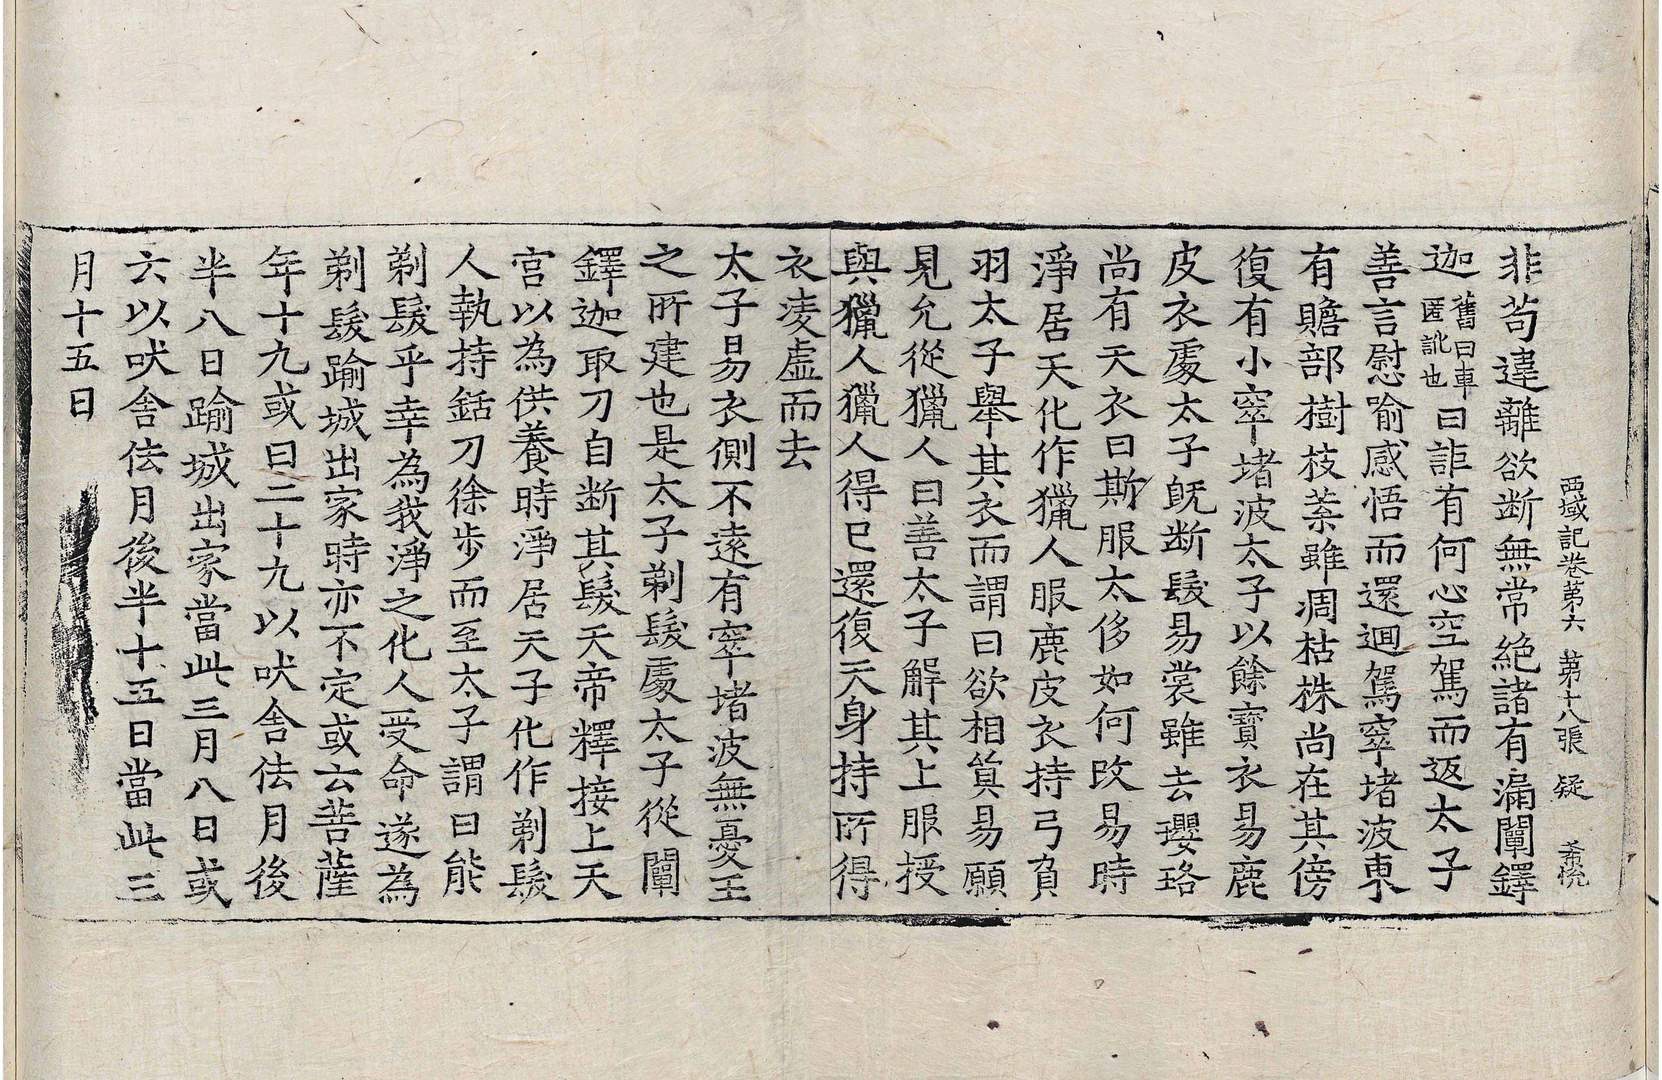 西域記卷第六　第十八張　疑
非苟違離欲断無常絶諸有漏闡鐸
迦舊曰車匿訛也曰詎有何心空駕而返太子
善言慰喻感悟而還迴駕窣堵波東
有贍部樹枝葉雖凋枯株尚在其傍
復有小窣堵波太子以餘寶衣易鹿
皮衣處太子旣断髮易裳雖去瓔珞
尚有天衣曰斯服太侈如何改易時
淨居天化作獵人服鹿皮衣持弓負
羽太子舉其衣而謂曰欲相貿易願
見允從獵人曰善太子解其上服授
與獵人獵人得已還復天身持所得
衣淩虛而去
太子易衣側不遠有窣堵波無憂王
之所建也是太子剃髮處太子從闡
鐸迦取刀自断其髮天帝釋接上天
宮以為供養時淨居天子化作剃髮
人執持銛刀徐步而至太子謂曰能
剃髮乎幸為我淨之化人受命遂為
剃髮踰城出家時亦不定或云菩薩
年十九或曰二十九以吠舍佉月後
半八日踰城出家當此三月八日或
六以吠舍佉月後半十五日當此三
月十五日